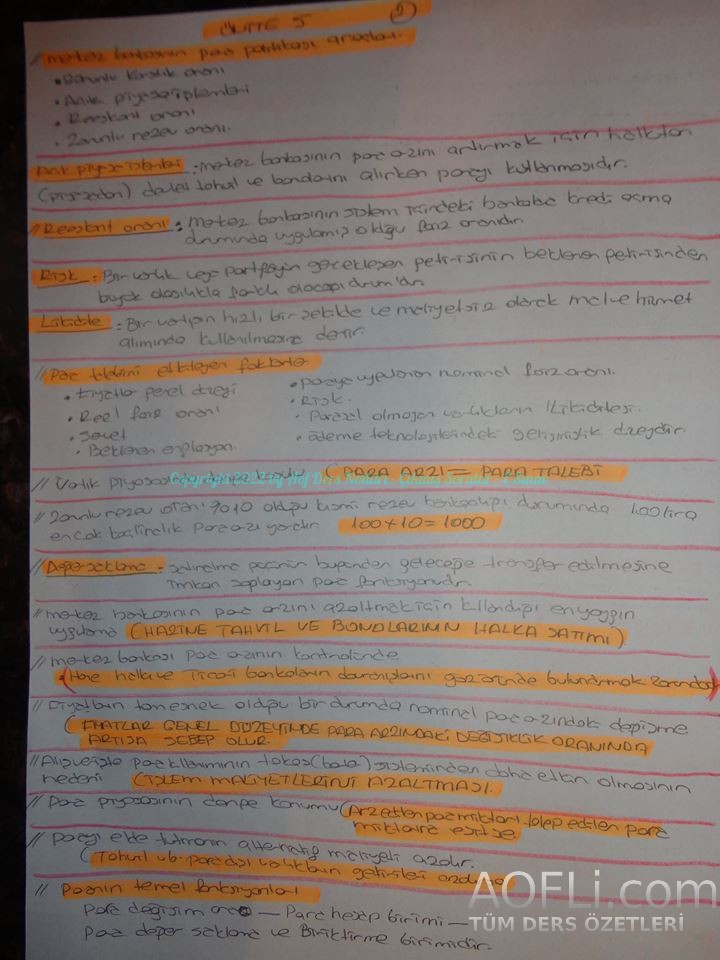 ÜNİTE 5 2
// merkez bankasının para politikası araçları.
• Zorunlu karşılık oranı
• Açık piyasa işlemleri
• Reeskont oranı
• Zorunlu rezerv oranı.
Açık piyasa işlemleri : merkez bankasının para arzını artırmak için halktan
(piyasadan) devlet tahvil ve bonolarını alırken parayı kullanmasıdır.
// Reeskont oranı : merkez bankasının sistem içindeki bankalara kredi açma
durumunda uygulamış olduğu faiz oranıdır.
Risk : Bir varlık veya portföyün gerçekleşen getirisinin beklenen getirisinden
büyük olasılıkla farklı olacağı durum'dur
Likidite : Bir varlığın hızlı bir şekilde ve maliyetsiz olarak mal ve hizmet
alımında kullanılmasına denir.
// Para talebini etkileyen faktörler
• Fiyatlar genel düzeyi
• Reel faiz oranı
• Servet
• Beklenen enflasyon.
• paraya uygulanan nominal faiz oranı.
• Risk.
• Parasal olmayan varlıkların likiditesi.
• ödeme teknolojilerindeki gelişmişlik düzeyidir.
// Varlık piyasasında denge koşulu (PARA ARZI = PARA TALEBİ
Copyright 2022 by Aöf Ders Notları - Çıkmış Sorular -
// Zorunlu rezerv oranı %10 olduğu kısmi rezerv bankacılığı durumunda 100 lira
en çok kaç liralık para arzı yaratır. 100x10=1000
// Değer saklama : satınalma gücünün bugünden geleceğe transfer edilmesine
imkan sağlayan para fonksiyonudur.
// merkez bankasının para arzını azaltmak için kullandığı en yaygın
uygulama (HAZİNE TAHVİL VE BONOLARININ HALKA SATIMI)
// merkez bankası para arzının kontrolünde
(Hane halkı ve ticari bankaların davranışlarını gözönünde bulundurmak zorunda)
// Fiyatların tam esnek olduğu bir durumda nominal para arzındaki değişme
(FİYATLAR GENEL DÜZEYİNDE PARA ARZINDAKİ DEĞİŞİKLİK ORANINDA
ARTIŞA SEBEP OLUR.
// Alışverişte para kullanımının takas (barter) sisteminden daha etkin olmasının
nedeni (İŞLEM MALİYETLERİNİ AZALTMASI.
// Para piyasasının denge konumu (Arz edilen para miktarı talep edilen para
miktarına eşitse
// Parayı elde tutmanın alternatif maliyeti azalır.
(Tahvil vb. para dışı varlıkların getirileri azalırsa
// Paranın temel fonksiyonları
Para değişim aracı — Para hesap birimi —
Para değer saklama ve Biriktirme birimidir.
AOFLi.com
TÜM DERS ÖZETLERİ